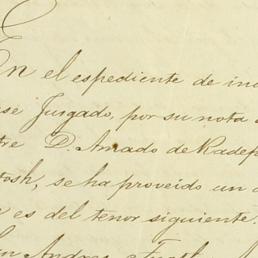 En el espediente de in
ese Jusgado, por su nota
tre D. Amado de Radep
tosh, se ha proveido un
e es del tenor siguiente.
San Andres